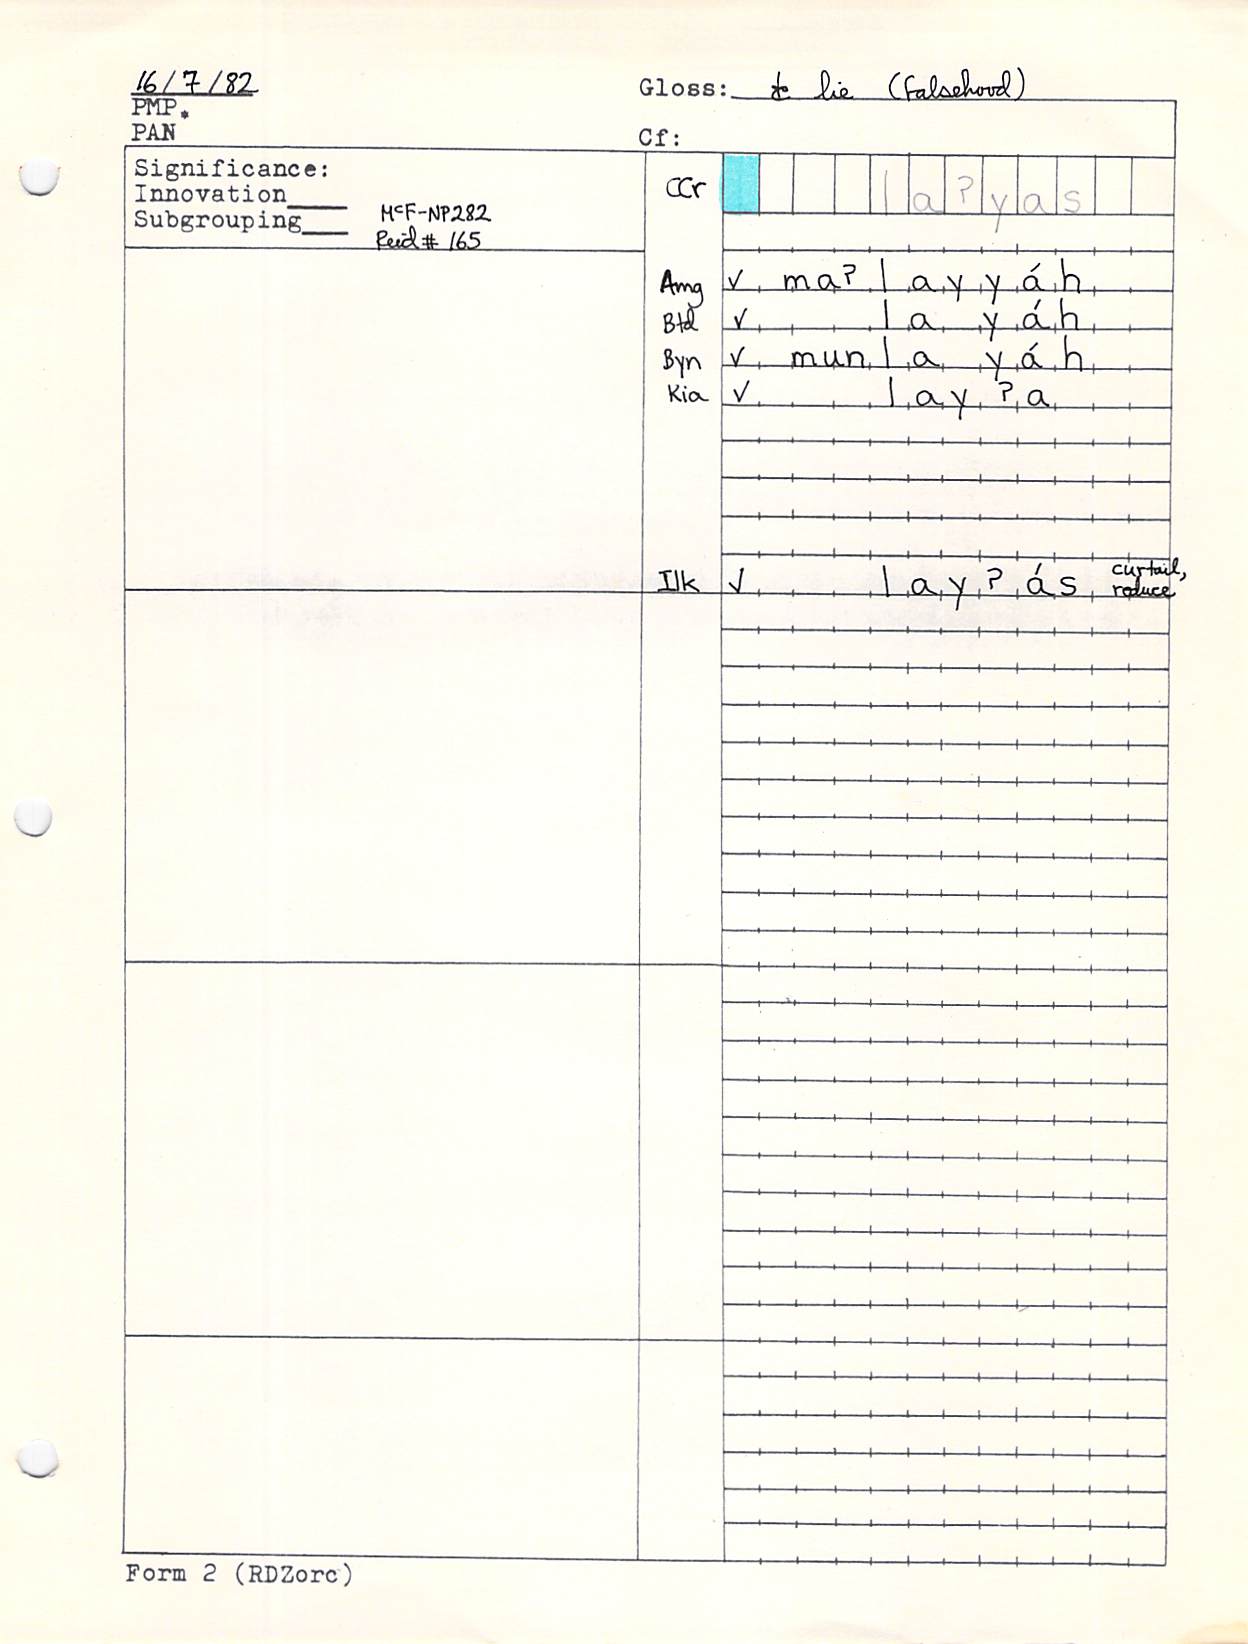 16/7/82
Gloss: to lie (falsehood)
PMP*
PAN
Cf:
Significance:
Innovation____
Subgrouping____
McF-NP282
Reid # 165
CCr laʔyas
Amg ✓ maʔlayyáh
Btd ✓ layáh
Byn ✓ munlayáh
Kia ✓ layʔa
Ilk ✓ layʔás curtail,
reduce
Form 2 (RDZorc)